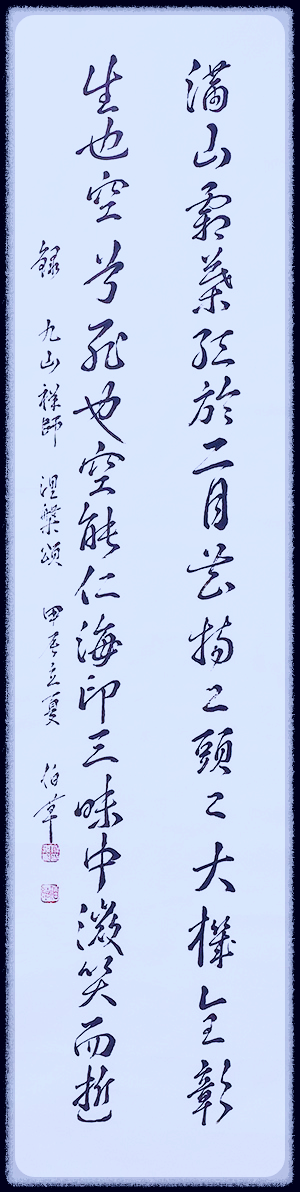 滿山霜葉紅於二月花物〻頭〻大機全彰
生也空兮死也空能仁海印三昧中微笑而逝
錄 九山禪師 涅槃頌 甲辰立夏 伯草